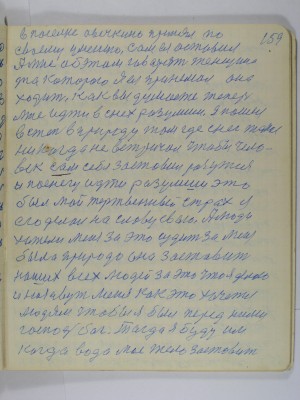 в поселке овечкино пришел по
своему умению, сам вы оставил
Я мне об этом говорит женщина
для которого я и принемал она
ходит, как вы думаете тепер
мне идти в снех разумши. Я пошел
в степ в природу там где снег такой
никогда не встречал чтобы чело-
век сам себя заставил разутся
и по снегу идти разумши это
был мой тут твенный страх я
сделал на славу свою. А люди
хотели меня за это судит за меня
была природа она заставит
наших всех людей за это что я думаю
и назавут меня как это хочется
людям чтобы я был перед ними
господ бог. Тагда я буду им
когда вода мое тело заставит
159